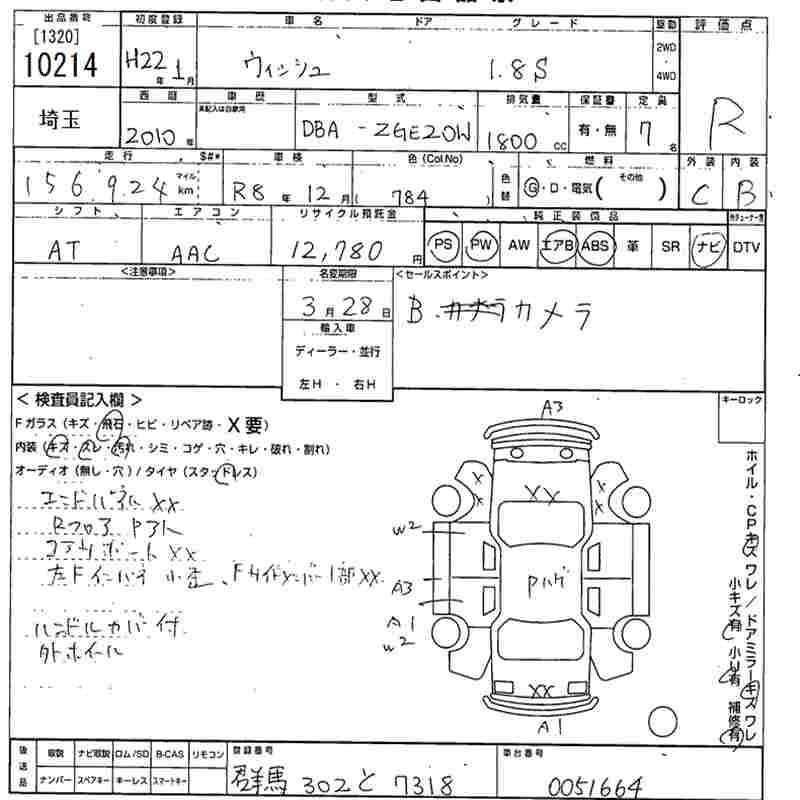 出品番号 初度登録 車名 ドア グレード 駆動 評価点
[1320]
10214 H22年 1月 ウィッシュ 1.8S 2WD・4WD R
埼玉 西暦 車歴 型式 排気量 保証書 定員
未記入は自家用
2010年 DBA - ZGE20W 1800cc 有・無 7名
走行 $#* 車検 色(Col.No) 色替 燃料 外装 内装
156,924 マイル km R8年 12月 (784) G・D・電気(その他) C B
シフト エアコン リサイクル預託金 純正装備品
AT AAC 12,780円 PS PW AW エアB ABS 革 SR ナビ DTV
<注意事項> 名変期限 <セールスポイント>
3月28日 B.カメラ
輸入車
ディーラー・並行
左H ・ 右H
< 検査員記入欄 > キーロック
Fガラス(キズ・飛石・ヒビ・リペア跡・X要)
内装(キズ・スレ・汚れ・シミ・コゲ・穴・キレ・破れ・割れ)
オーディオ(無し・穴)/タイヤ(スタッドレス)
エンドパネル XX
Rフロア Pアト
コアサポート XX
左Fインパネ 小歪、Fサイドメンバー1部XX
ハンドルカバー付
外ホイール
A3
XX
X X
X X
W2
A3
A1
W2
Pハゲ
XX
A1
ホイル・CPキズ ワレ/ドアミラーキズ ワレ
小キズ有 小U有 補修有
後送品 取説 ナビ取説 ロム/SD B-CAS リモコン 登録番号 車台番号
ナンバー スペアキー キーレス スマートキー 群馬 302 と 7318 0051664